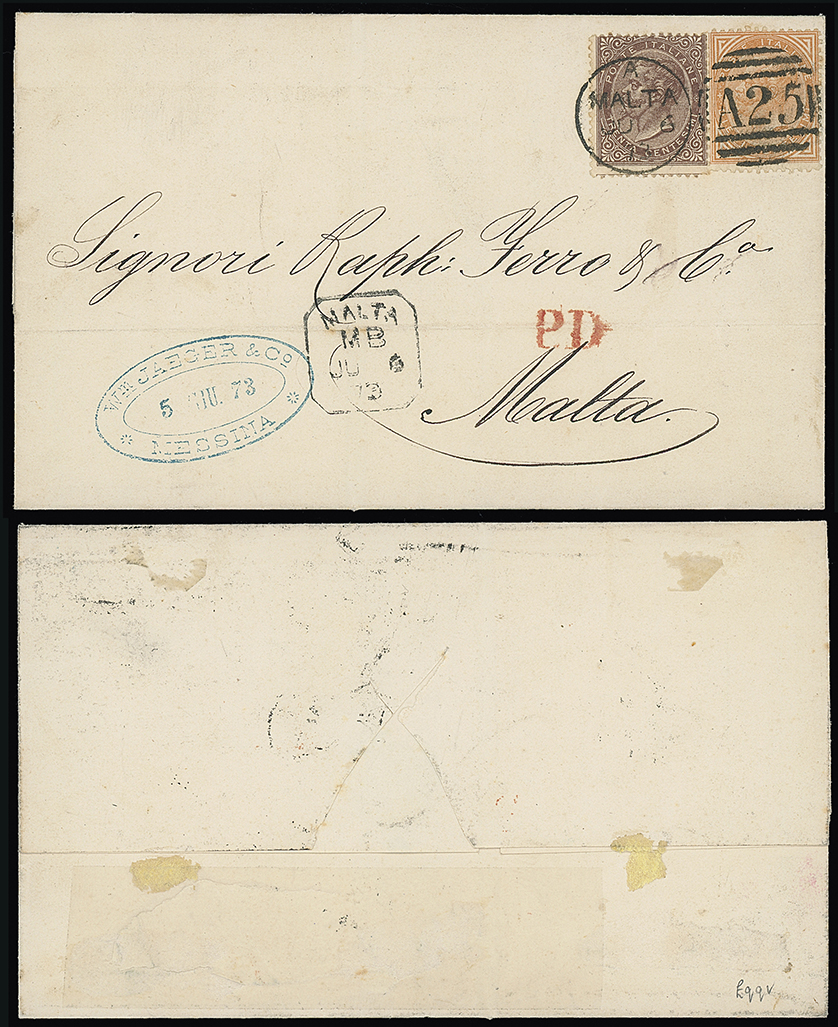 POSTE ITALIANE
TRENTA CENTESIMI
A
MALTA
JU 6
A25
Signori Raph: Ferro & Co.
MALTA
MB
JU 6
73
P.D.
Wm JAEGER & Co
5 GIU. 73
MESSINA
Malta.